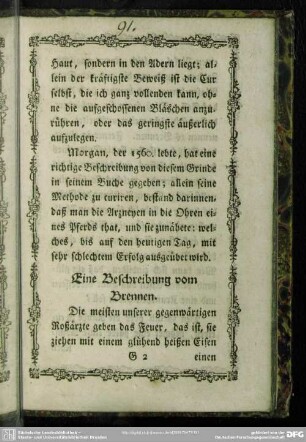 91.
Haut, sondern in den Adern liegt; al-
lein der kräftigste Beweiß ist die Cur
selbst, die ich ganz vollenden kann, oh-
ne die aufgeschossenen Bläschen anzu-
rühren, oder das geringste äußerlich
aufzulegen.
Morgan, der 1560. lebte, hat eine
richtige Beschreibung von diesem Grinde
in seinem Buche gegeben; allein seine
Methode zu curiren, bestund darinnen,
daß man die Arzneyen in die Ohren ei-
nes Pferds that, und sie zunähete: wel-
ches, bis auf den heutigen Tag, mit
sehr schlechtem Erfolg ausgeübet wird.
Eine Beschreibung vom
Brennen.
Die meisten unserer gegenwärtigen
Roßärzte geben das Feuer, das ist, sie
ziehen mit einem glühend heißen Eisen
G 2 einen